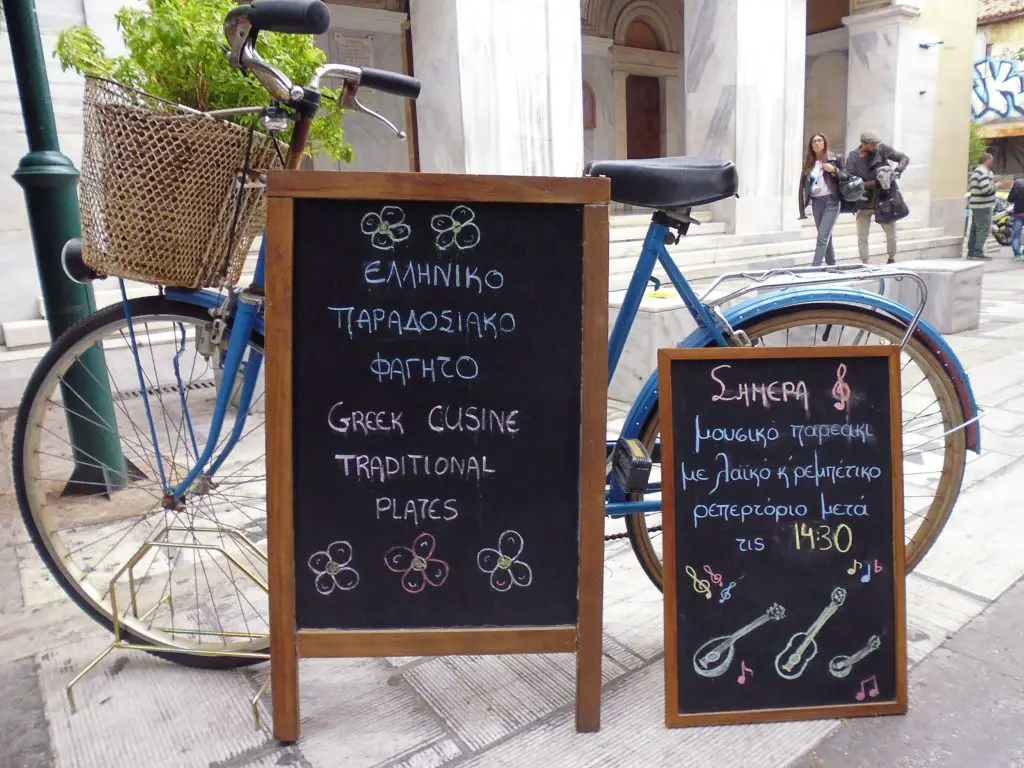 ΕΛΛΗΝΙΚΟ
ΠΑΡΑΔΟΣΙΑΚΟ
ΦΑΓΗΤΟ
GREEK CUSINE
TRADITIONAL
PLATES
ΣΗΜΕΡΑ
μουσικό παρεάκι
με λαϊκό ή ρεμπέτικο
ρεπερτόριο μετά
τις 14:30